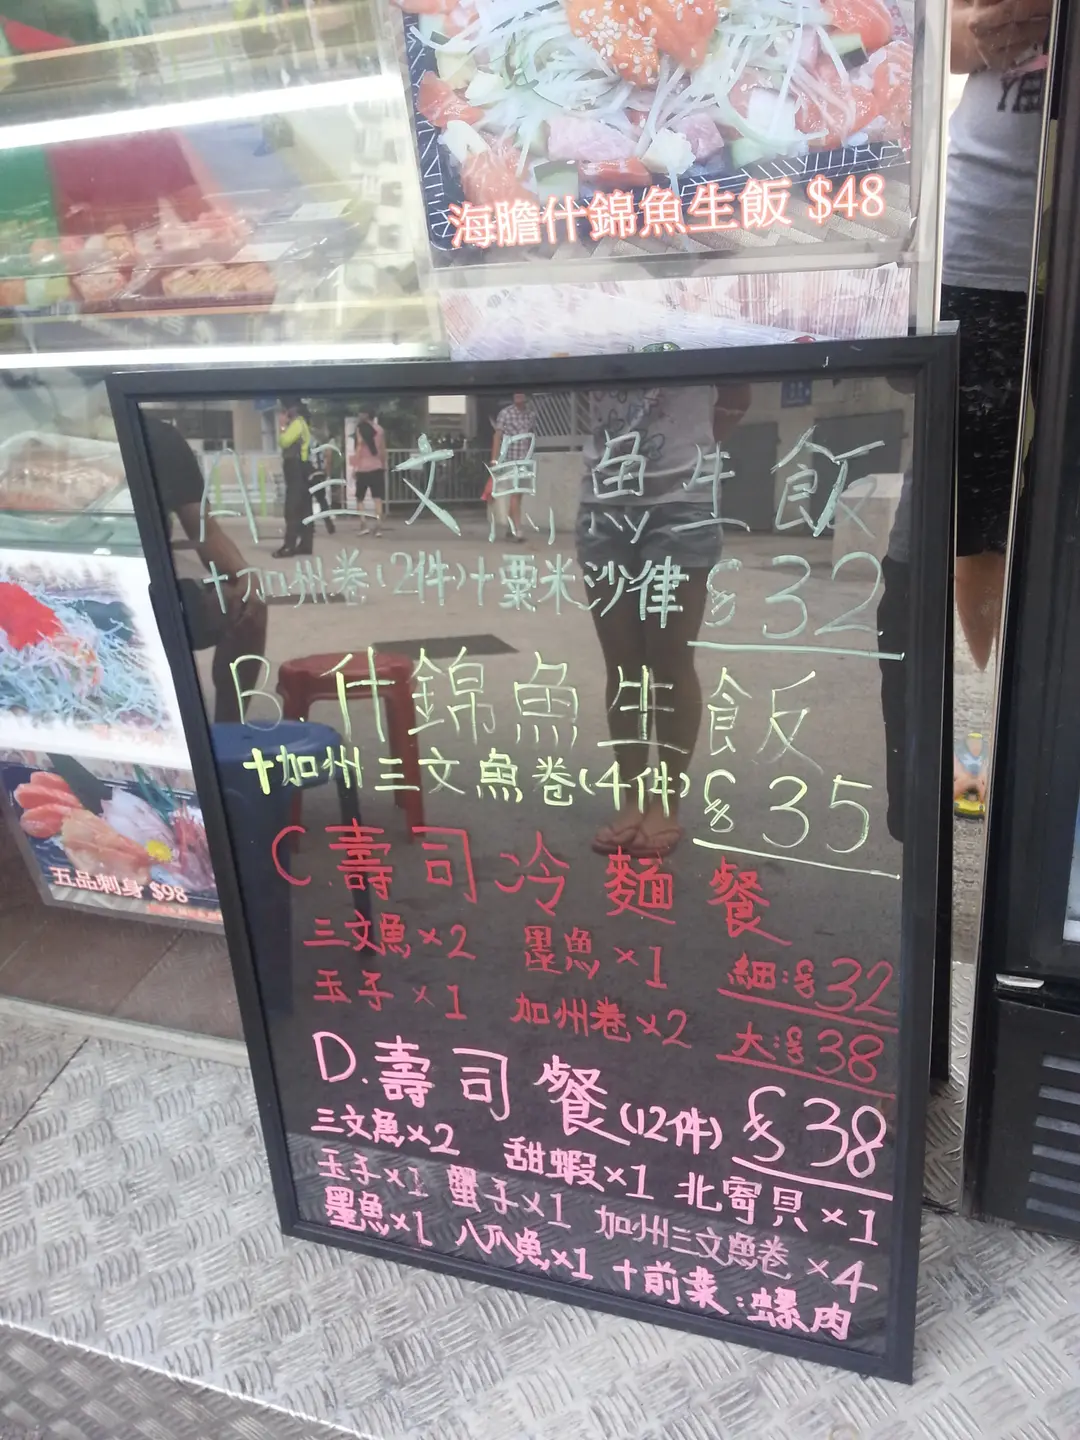 海膽什錦魚生飯 $48
A 三文魚魚生飯
+加州卷(2件)+粟米沙律 $32
B.什錦魚生飯
+加州三文魚卷(4件) $35
C.壽司冷麵餐
三文魚×2 墨魚×1 細:$32
玉子×1 加州卷×2 大:$38
D.壽司餐(12件) $38
三文魚×2 甜蝦×1 北寄貝×1
玉子×1 蟹子×1 加州三文魚卷×4
墨魚×1 八爪魚×1 +前菜:螺肉
五品刺身 $98